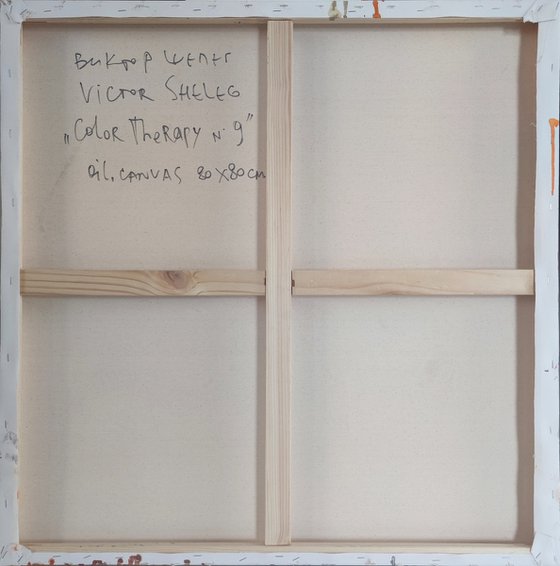 Виктор Шелег
VICTOR SHELEG
„Color THeRAPY N 9"
Oil. CANVAS 80X80CM